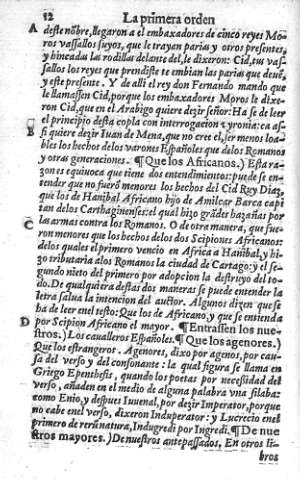 12 La primera orden
A deste nõbre, llegaron a el embaxadores de cinco reyes Mo-
ros vassallos suyos, que le trayan parias y otros presentes,
y hincadas las rodillas delante del, le dixeron: Cid, tus vas-
sallos los reyes que prendiste te embian las parias que deuẽ,
y este presente. Y de alli el rey don Fernando mando que
le llamassen Cid, porque los embaxadores Moros le dixe-
ron Cid, que en el Arabigo quiere dezir señor: Ha se de leer
el principio desta copla con interrogacion y yronia: ca as-
B si quiere dezir Iuan de Mena, que no cree el, ser menos loa-
bles los hechos delos varones Españoles que delos Romanos
y otras generaciones. ¶ Que los Africanos.) Esta ra-
zon es equiuoca que tiene dos entendimientos: puede se en-
tender que no fuerõ menores los hechos del Cid Ruy Diaz,
que los de Hanibal Africano hijo de Amilcar Barca capi
tan delos Carthaginenses: el qual hizo grãdes hazañas por
C las armas contra los Romanos. O de otra manera, que fue-
ron menores que los hechos delos dos Scipiones Africanos:
delos quales el primero vencio en Africa a Hanibal, y hi-
zo tributaria alos Romanos la ciudad de Cartago: y el se-
gundo nieto del primero por adopcion la destruyo del to-
do. De qualquiera destas dos maneras se puede entender la
letra salua la intencion del auctor. Algunos dizen que se
ha de leer enel testo: Que los de Africano, y que se entienda
D por Scipion Africano el mayor. ¶ Entrassen los nue-
stros.) Los caualleros Españoles. ¶ Que los agenores.)
Que los estrangeros. Agenores, dixo por agenos, por cau-
sa del verso y del consonante: la qual figura se llama en
Griego Epenthesis, quando los poetas por necessidad del
verso, añaden en el medio de alguna palabra vna silaba:
como Enio, y despues Iuuenal, por dezir Imperator, porque
no cabe enel verso, dixeron Induperator: y Lucrecio enel
primero de rerũ natura, Indugredi por Ingredi. ¶ De nue
stros mayores.) De nuestros antepassados, En otros li-
bros